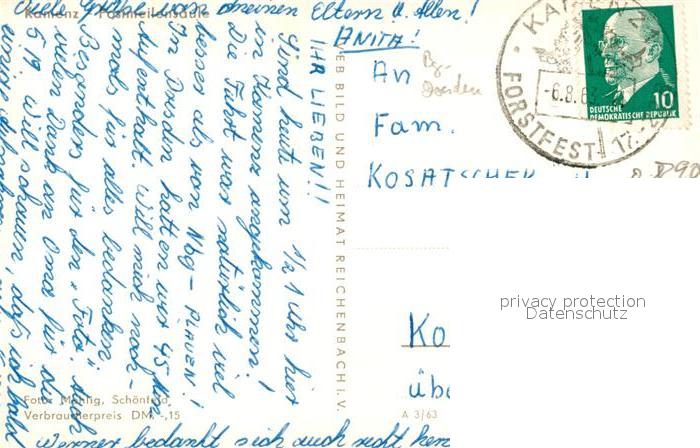 Viele Grüße von meinen Eltern u. Allen!
ANITA!
Kamenz Postmeilensäule
IHR LIEBEN!!
Sind heut um 1/2 1 Uhr hier
in Kamenz angekommen!
Die Fahrt war natürlich viel
besser als von Nbg - PLAUEN!
In Dresden hatten wir 45 Min
Aufenthalt. Will mich noch-
mals für alles bedanken
Besonders für den "Foto".
vielen Dank an Oma für die
Will schauen, daß ich bald
Werner bedankt sich auch recht
Foto: Mehlig, Schönfeld
Verbraucherpreis DM -,15
VEB BILD UND HEIMAT REICHENBACH I. V.
A 3/63
An
Fam.
KOSATSCHEK
Ko
üb
Bz.
Dresden
KAMENZ
-6.8.63
FORSTFEST
17
10
DEUTSCHE
DEMOKRATISCHE REPUBLIK
D90
privacy protection
Datenschutz